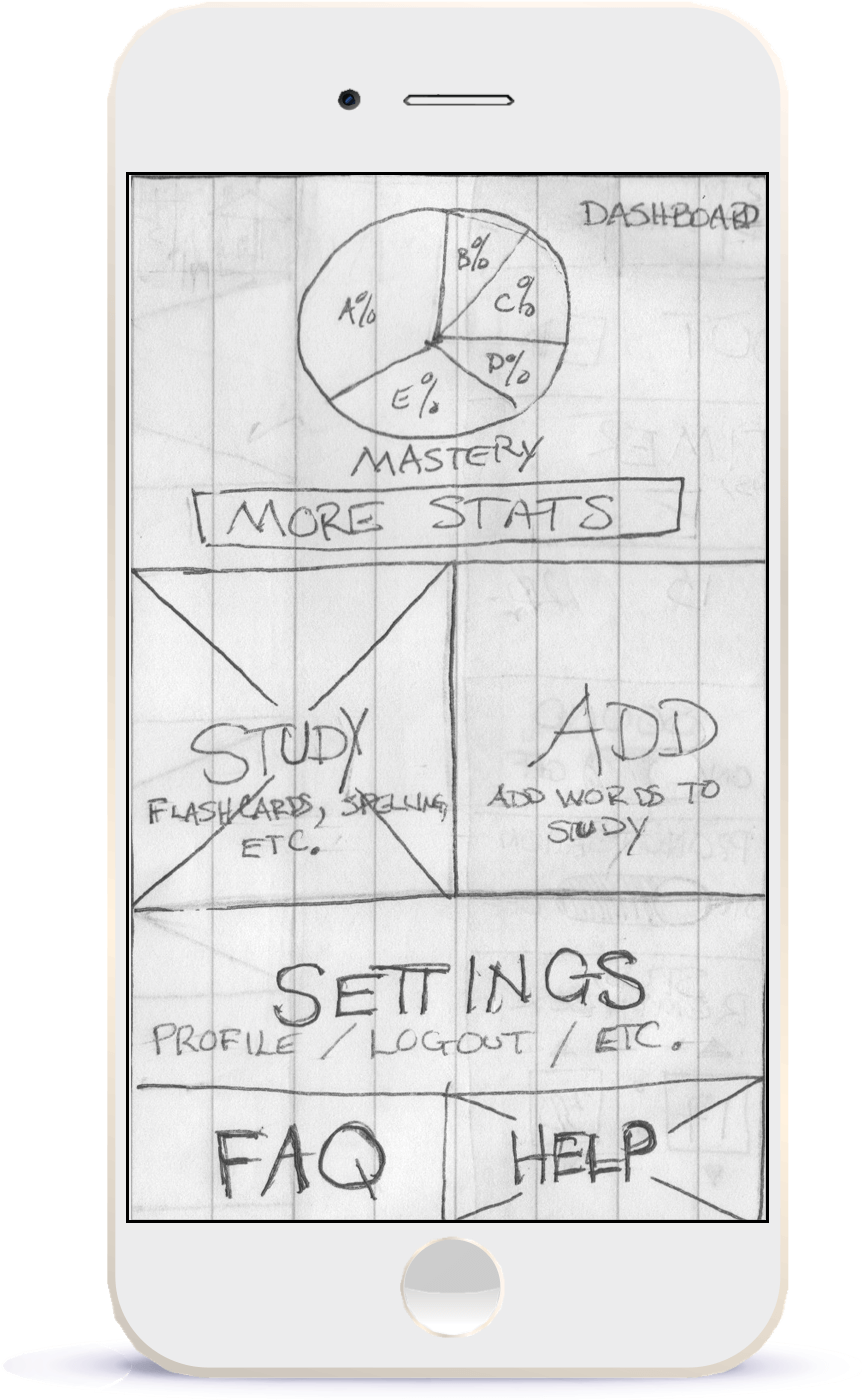 DASHBOARD
A%
B%
C%
D%
E%
MASTERY
MORE STATS
STUDY
FLASHCARDS, SPELLING,
ETC.
ADD
ADD WORDS TO
STUDY
SETTINGS
PROFILE / LOGOUT / ETC.
FAQ
HELP